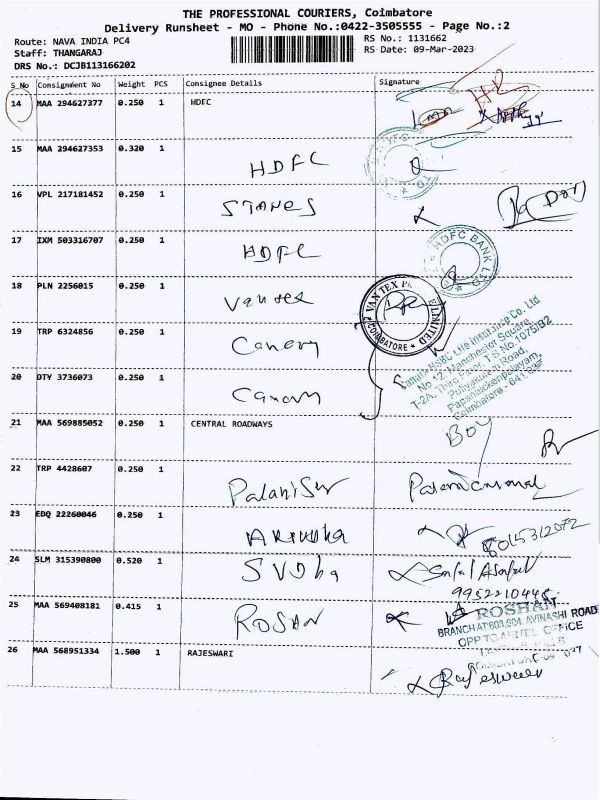 THE PROFESSIONAL COURIERS, Coimbatore
Delivery Runsheet - MO - Phone No.:0422-3505555 - Page No.:2
Route: NAVA INDIA PC4 RS No.: 1131662
Staff: THANGARAJ RS Date: 09-Mar-2023
DRS No.: DCJB113166202
S No Consignment No Weight PCS Consignee Details Signature
14 MAA 294627377 0.250 1 HDFC
15 MAA 294627353 0.320 1 HDFC
16 VPL 217181452 0.250 1 STANES
17 IXM 503316707 0.250 1 HDFC
HDFC BANK LTD
18 PLN 2256015 0.250 1 Vantex
VAN TEX PR LIMITED COIMBATORE
19 TRP 6324856 0.250 1 Canery
Canara HSBC Life Insurance Co. Ltd
No 12, Manchester Square,
T-2A, Third Floor, T.S No.1075/B2
Puliyakulam Road,
Papanaickenpalayam,
Coimbatore - 641
20 OTY 3736073 0.250 1 Canary
21 MAA 569885052 0.250 1 CENTRAL ROADWAYS Boy
22 TRP 4428607 0.250 1
23 EDQ 22260046 0.250 1 8015312072
24 SLM 315390800 0.520 1
9952210445
25 MAA 569408181 0.415 1 ROSAN
ROSHAN
BRANCH AT:603,604, AVINASHI ROAD
OPP TO AIRTEL OFFICE
26 MAA 568951334 1.500 1 RAJESWARI Rajeswari